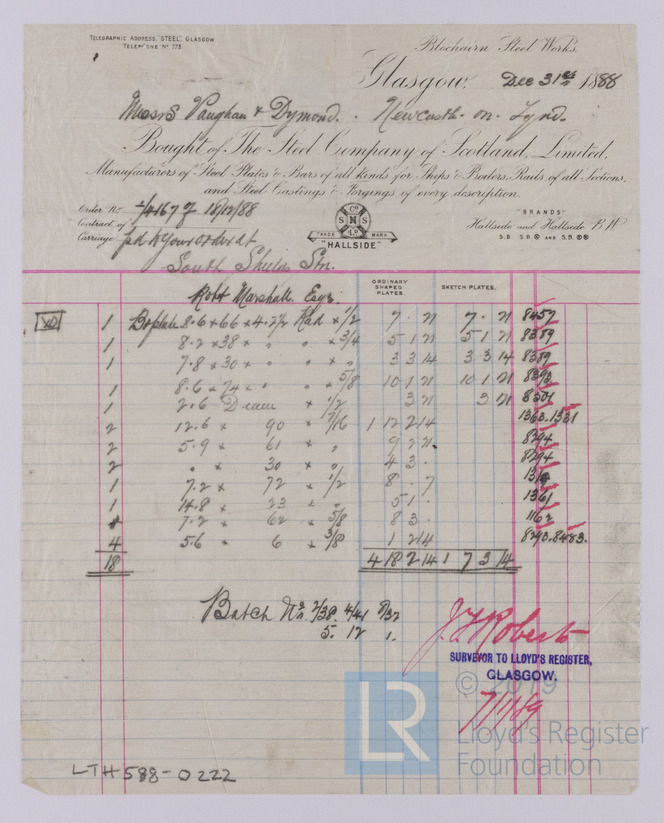 TELEGRAPHIC ADDRESS, "STEEL", GLASGOW
TELEPHONE Nº 773
Blochairn Steel Works,
Glasgow, Dec 31st 1888
Messrs Vaughan & Dymond. Newcastle-on-Tynd.
Bought of The Steel Company of Scotland, Limited,
Manufacturers of Steel Plates & Bars of all kinds for Ships & Boilers, Rails of all Sections,
and Steel Castings & Forgings of every description.
Order No 1/41677 18/12/88
Contract of
Carriage pd to your order at
South Shields Stn.
TRADE MARK
"HALLSIDE"
"BRANDS"
Hallside and Hallside B.W
S.B. S.B and S.B.
ORDINARY SHAPED PLATES.
SKETCH PLATES.
Robt Marshall Esqr.
1 Boplate 8.6 × 66 × 4.2½ Rad × 1/2 7 . 21 7 . 21 8457
1 8.2 × 38 × " " × 3/4 5 1 21 5 1 21 8389
1 7.8 × 30 × " " × " 3 3 14 3 3 14 8389
1 8.6 × 74 × " " × 5/8 10 1 21 10 1 21 8393
1 2.6 Diam × 1/2 3 21 3 21 8301
2 12.6 × 90 × 7/16 1 12 2 14 1363.1331
2 5.9 × 61 × " 9 2 21 8294
2 " × 30 × " 4 3 . 8294
1 7.2 × 72 × 1/2 8 . 7
1 14.8 × 23 × " 5 1 . 1361
7.2 × 62 × 5/8 8 3 . 1162
4 5.6 × 6 × 3/8 1 2 14 8293.8483.
18 4 18 2 14 1 7 3 14
Batch Nos 2/38. 4/41 8/32
5. 12 1.
J F Roberts
SURVEYOR TO LLOYD'S REGISTER,
GLASGOW.
7/1/89
© 2019
LR
Lloyd's Register
Foundation
LTH588-0222